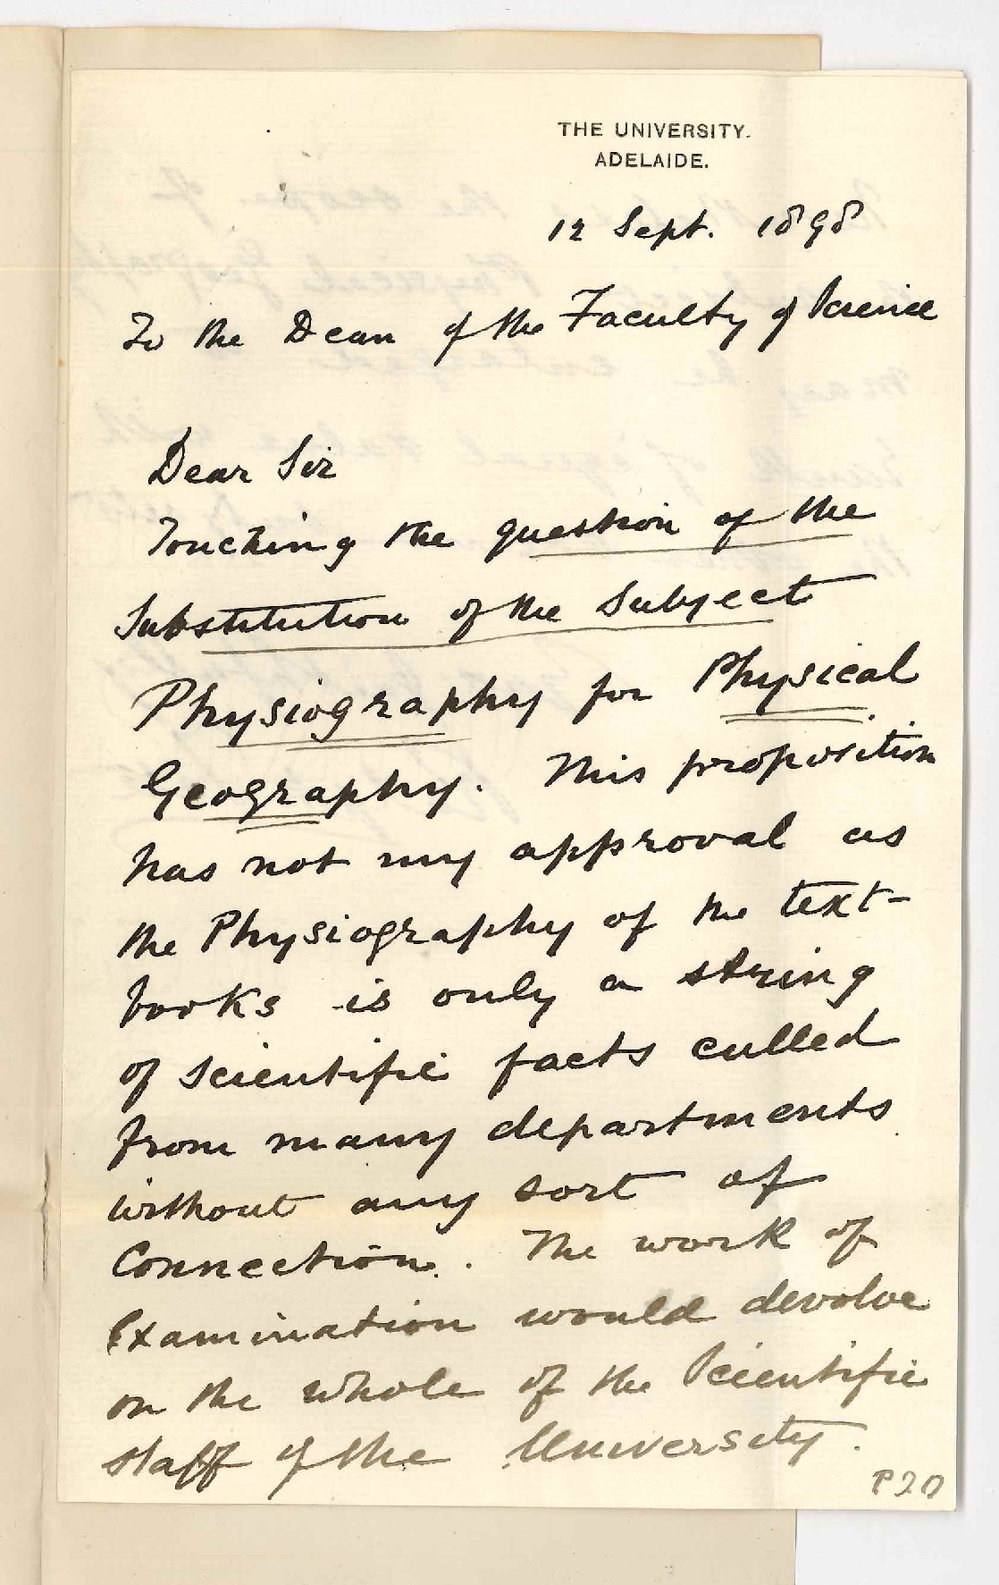 THE UNIVERSITY.
ADELAIDE.
12 Sept. 1898
To the Dean of the Faculty of Science
Dear Sir
Touching the question of the
Substitution of the Subject
Physiography for Physical
Geography. This proposition
has not my approval as
the Physiography of the text-
books is only a string
of scientific facts culled
from many departments
without any sort of
Connection. The work of
Examination would devolve
on the whole of the Scientific
staff of the University.
P20